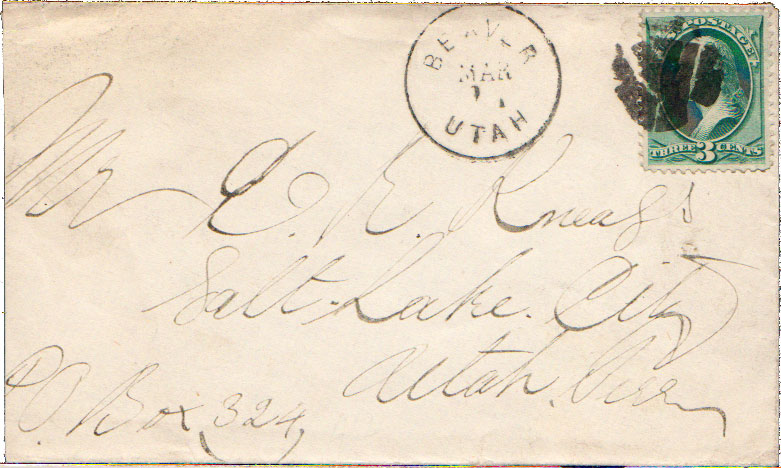 BEAVER
MAR
UTAH
U.S. POSTAGE
THREE 3 CENTS
Mr
Salt Lake City
Utah Terr
P.O. Box 324